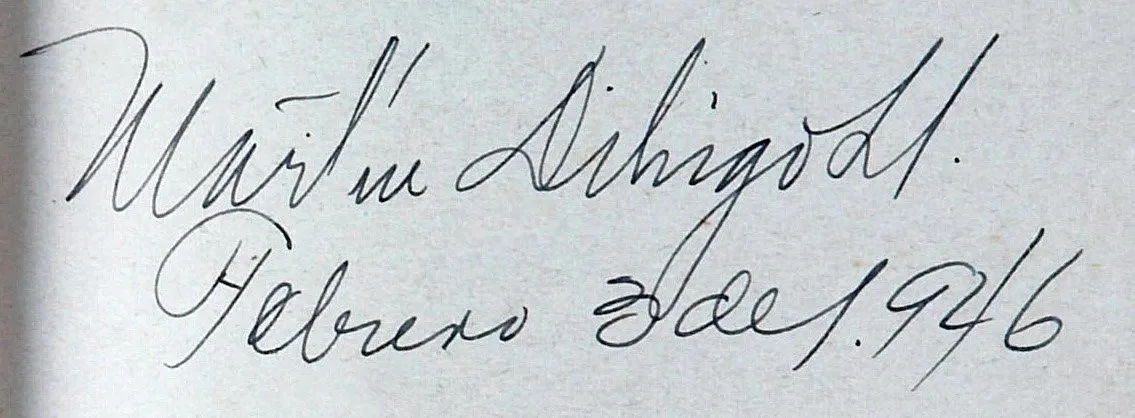 Martín Dihigo Ll.
Febrero 3 de 1.946